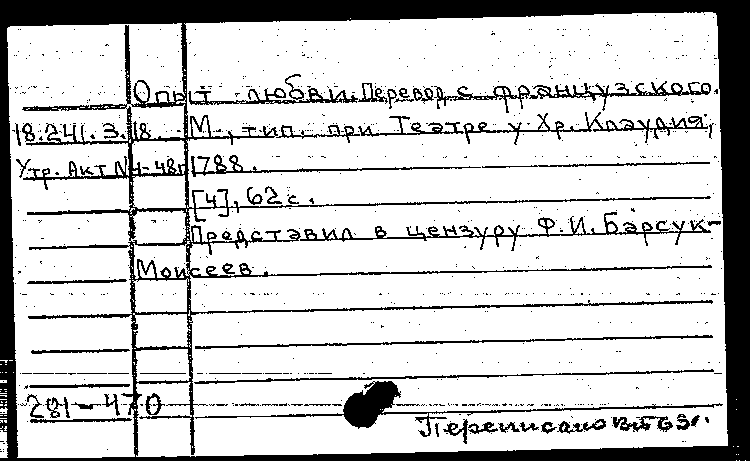 Опыт любви. Перевод с французского.
18.241.3.18. М., тип. при Театре у Хр. Клаудия,
Утр. Акт №4-48г 1788.
[4], 62 с.
Представил в цензуру Ф.И. Барсук-
Моисеев.
281-470
Переписано